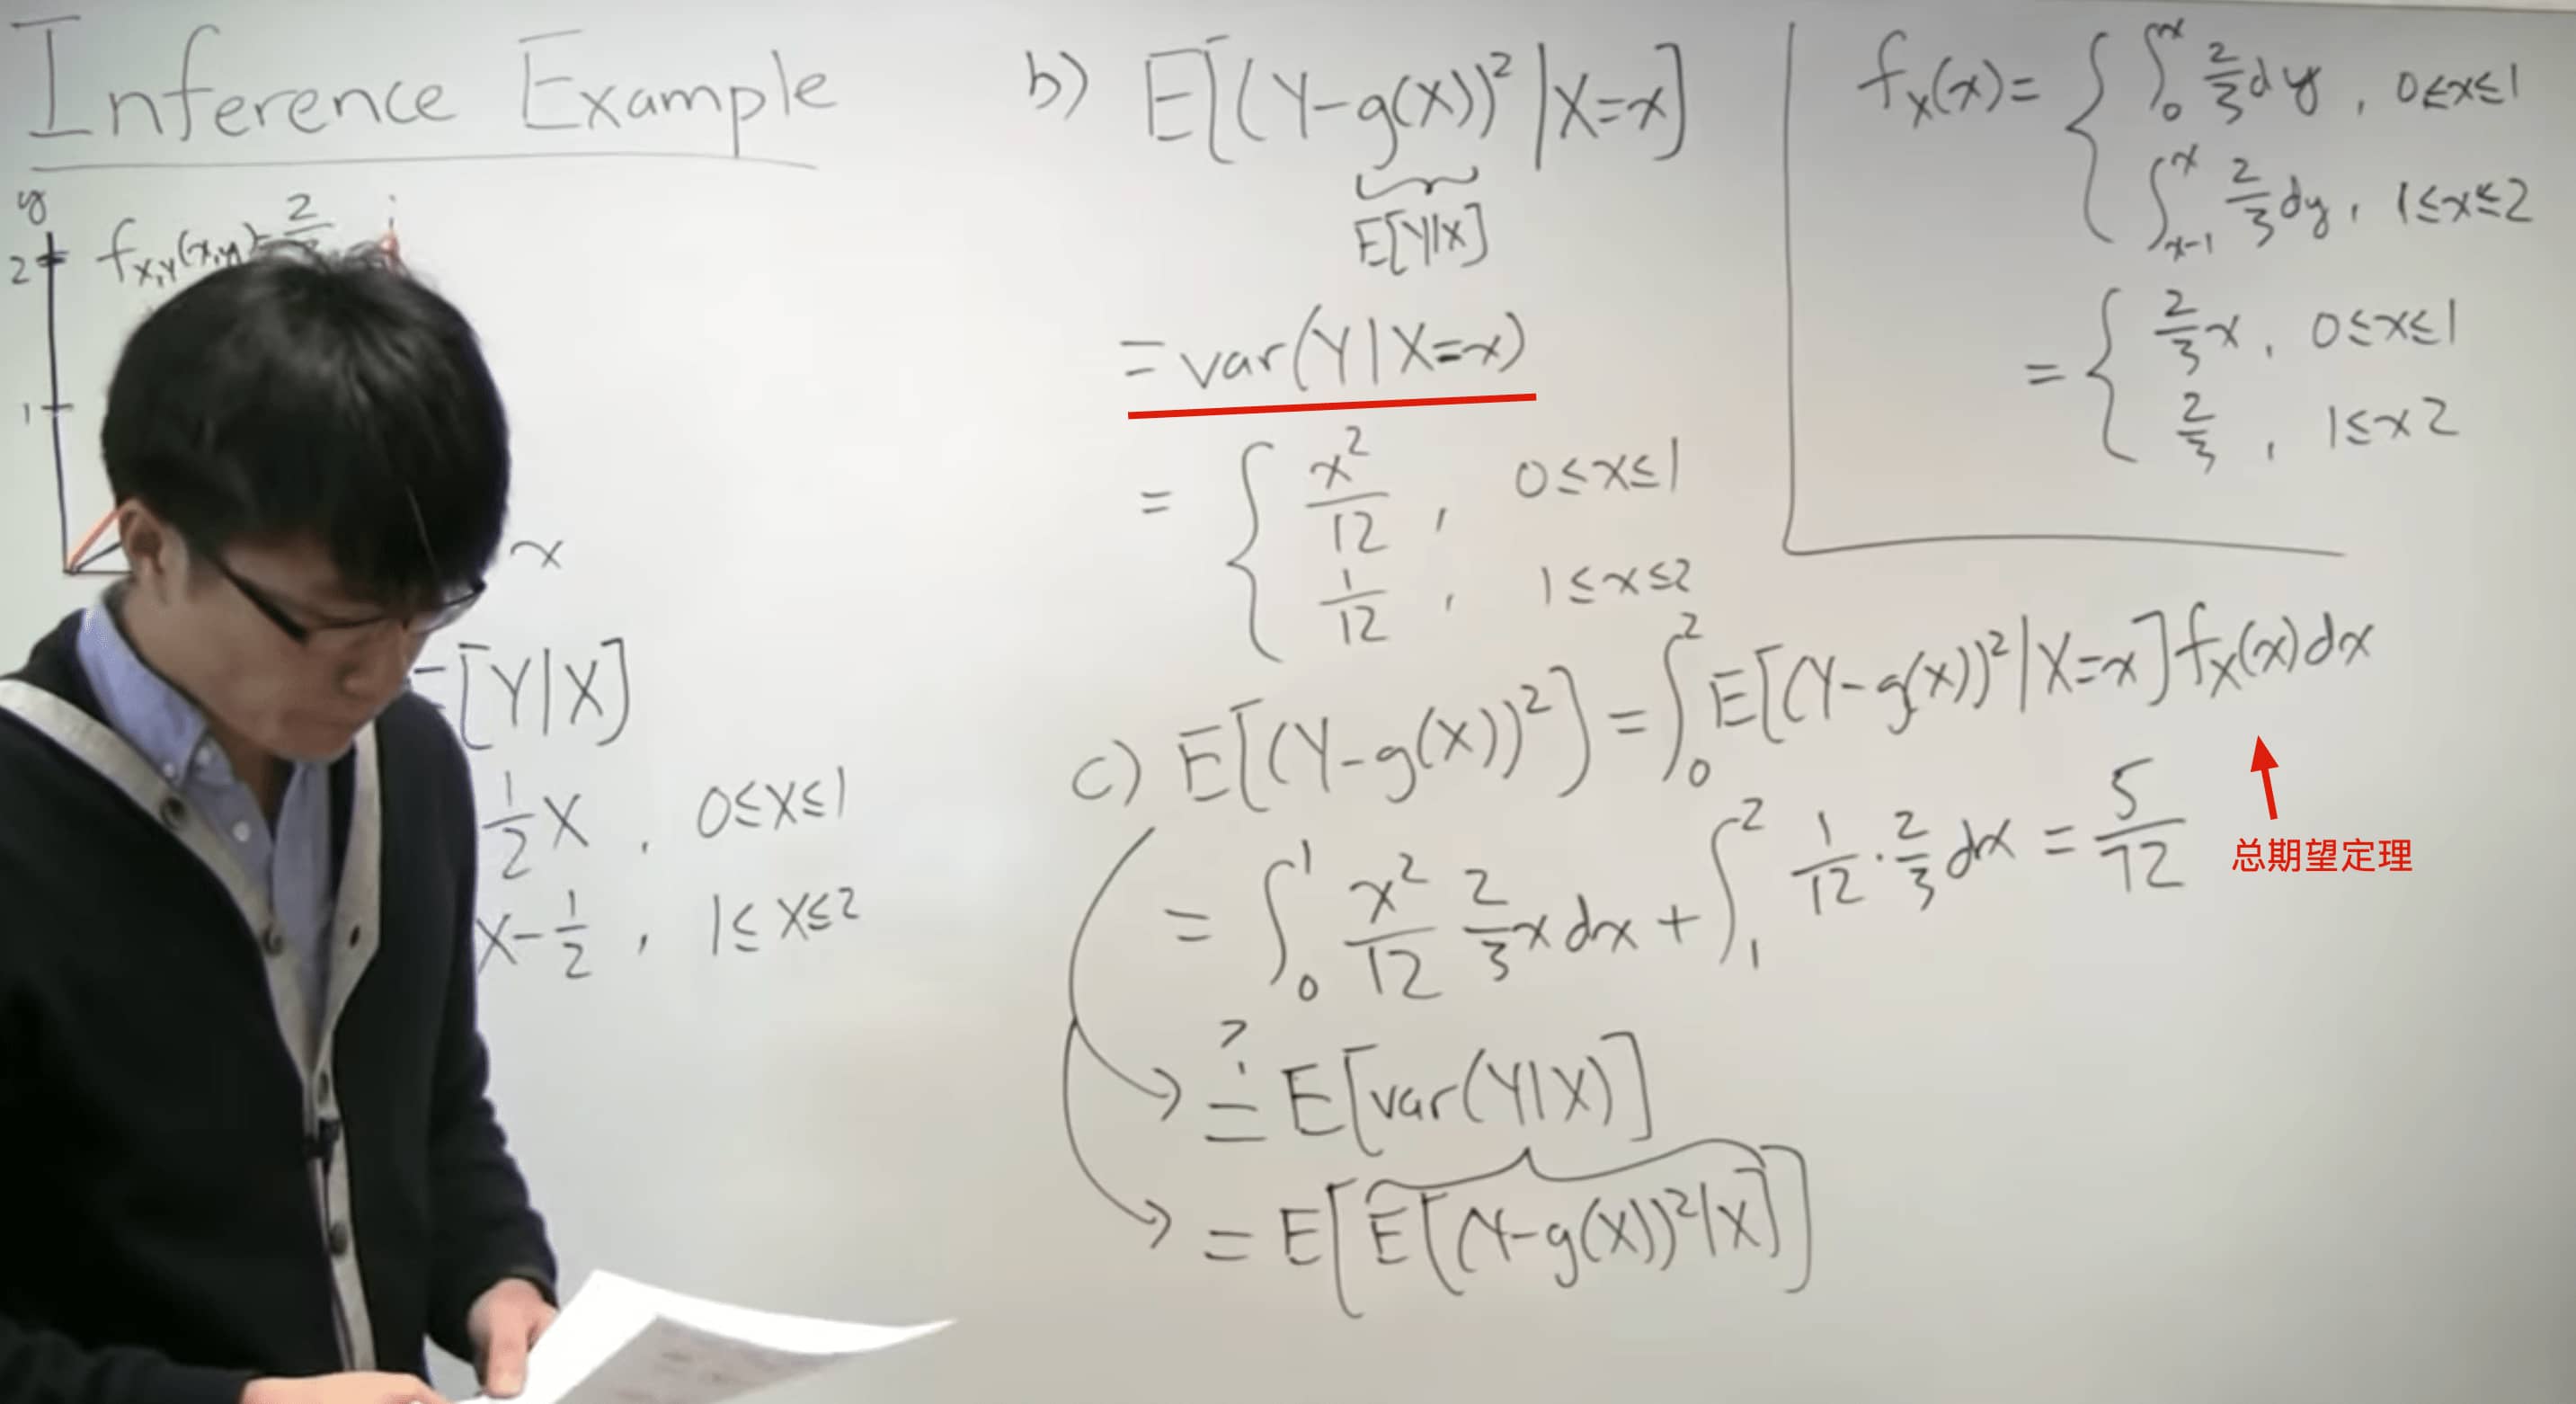 Inference Example
y
2
f_{X,Y}(x,y) = 2
1
x
E[Y|X]
1/2 X , 0≤X≤1
X - 1/2 , 1≤X≤2
b) E[(Y-g(X))² | X=x]
E[Y|X]
= var(Y|X=x)
= { x²/12 , 0≤x≤1
1/12 , 1≤x≤2
f_X(x) = { ∫_0^x 2/3 dy , 0≤x≤1
∫_{x-1}^x 2/3 dy , 1≤x≤2
= { 2/3 x , 0≤x≤1
2/3 , 1≤x 2
c) E[(Y-g(X))²] = ∫_0^2 E[(Y-g(X))² | X=x] f_X(x) dx
= ∫_0^1 x²/12 2/3 x dx + ∫_1^2 1/12 · 2/3 dx = 5/72
总期望定理
?
= E[var(Y|X)]
= E[E[(Y-g(X))² | X]]